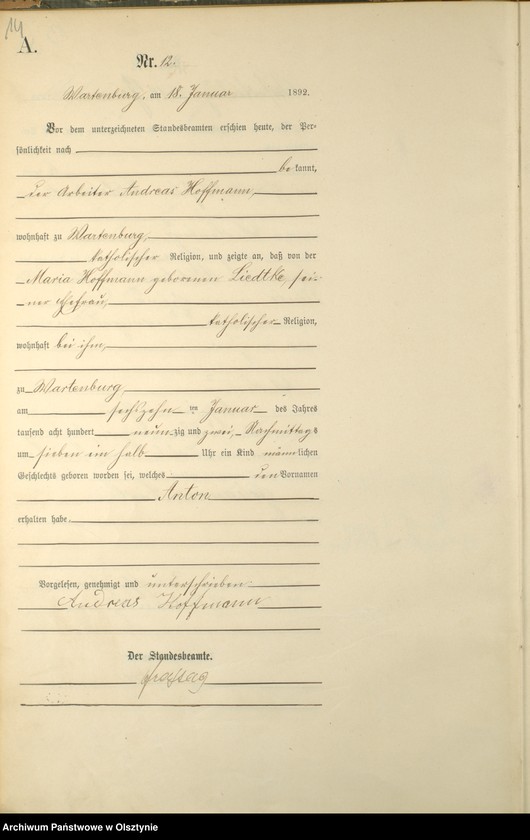 14
A.
Nr. 12.
Wartenburg, am 18. Januar 1892.
Vor dem unterzeichneten Standesbeamten erschien heute, der Per-
sönlichkeit nach
be kannt,
der Arbeiter Andreas Hoffmann,
wohnhaft zu Wartenburg,
katholischer Religion, und zeigte an, daß von der
Maria Hoffmann geborenen Liedtke, sei-
ner Ehefrau,
katholischer Religion,
wohnhaft bei ihm,
zu Wartenburg
am sechszehn ten Januar des Jahres
tausend acht hundert neun zig und zwei, Nachmittags
um sieben ein halb Uhr ein Kind männ lichen
Geschlechts geboren worden sei, welches den Vornamen
Anton
erhalten habe.
Vorgelesen, genehmigt und unterschrieben
Andreas Hoffmann
Der Standesbeamte.
Archiwum Państwowe w Olsztynie